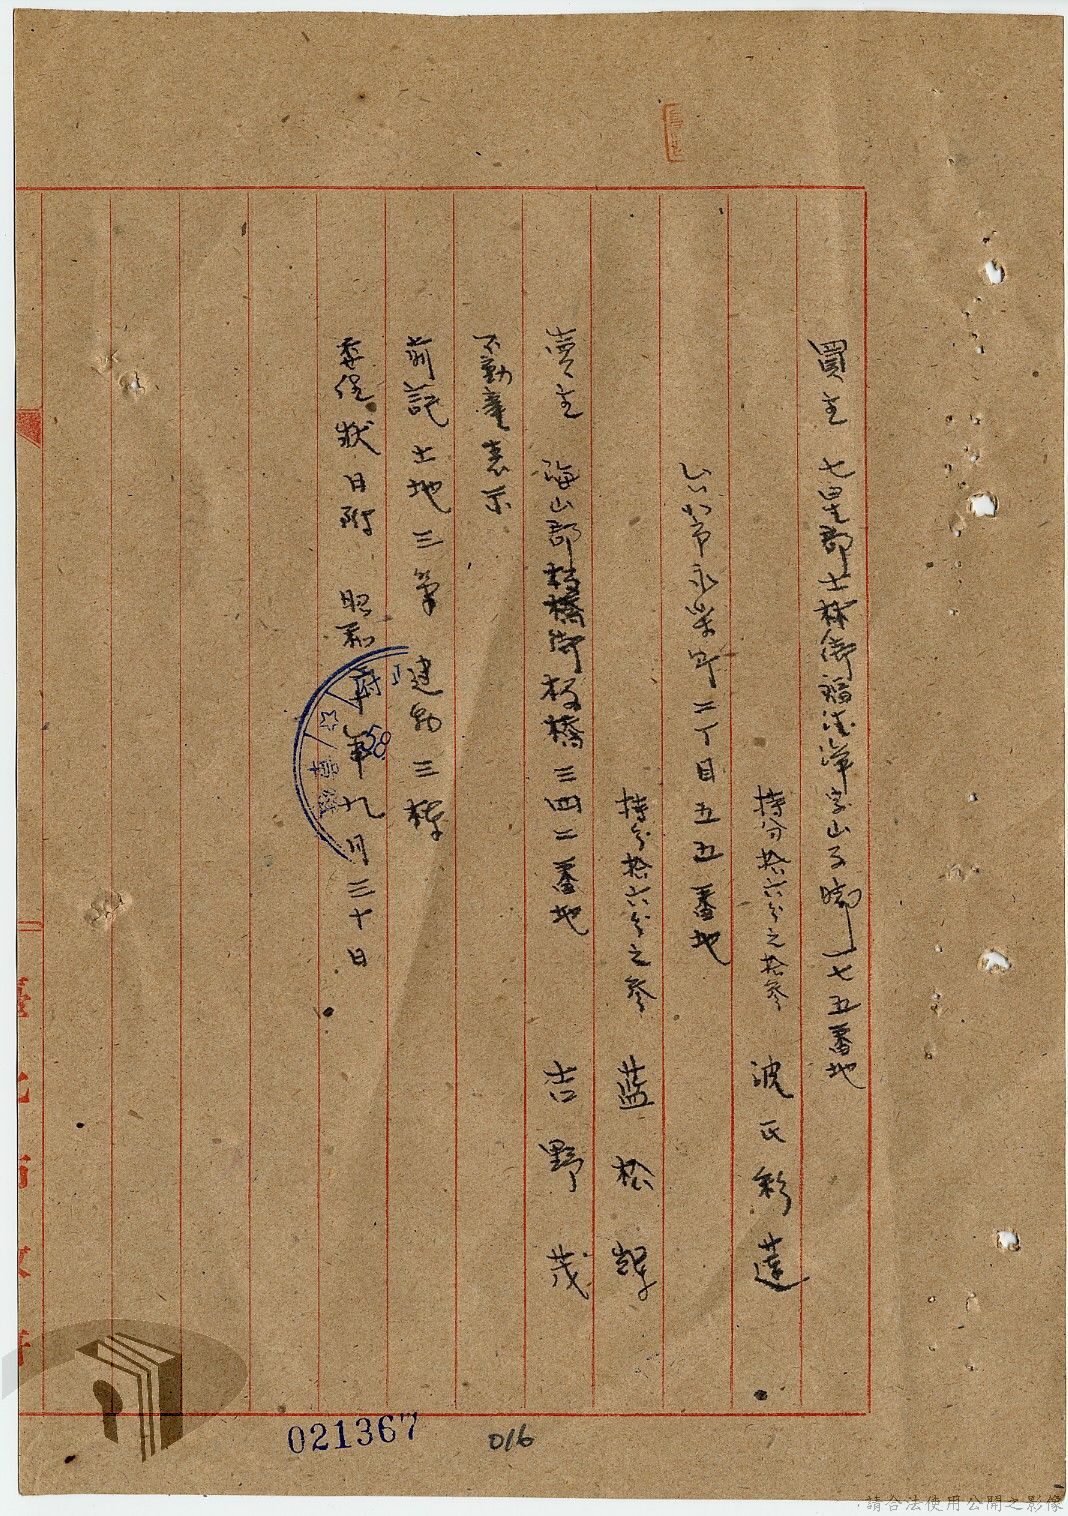 買主 七星郡士林街福德洋字山子脚一七五番地
持分拾六分之拾参 沈氏彩蓮
台北市永樂町二丁目五五番地
持分拾六分之参 藍松
賣主 海山郡板橋街板橋三四二番地
吉野茂
不動産表示
前記土地三筆 建物三棟
委任狀日附 昭和 年九月三十日
臺北
021367
016
請合法使用公開之影像